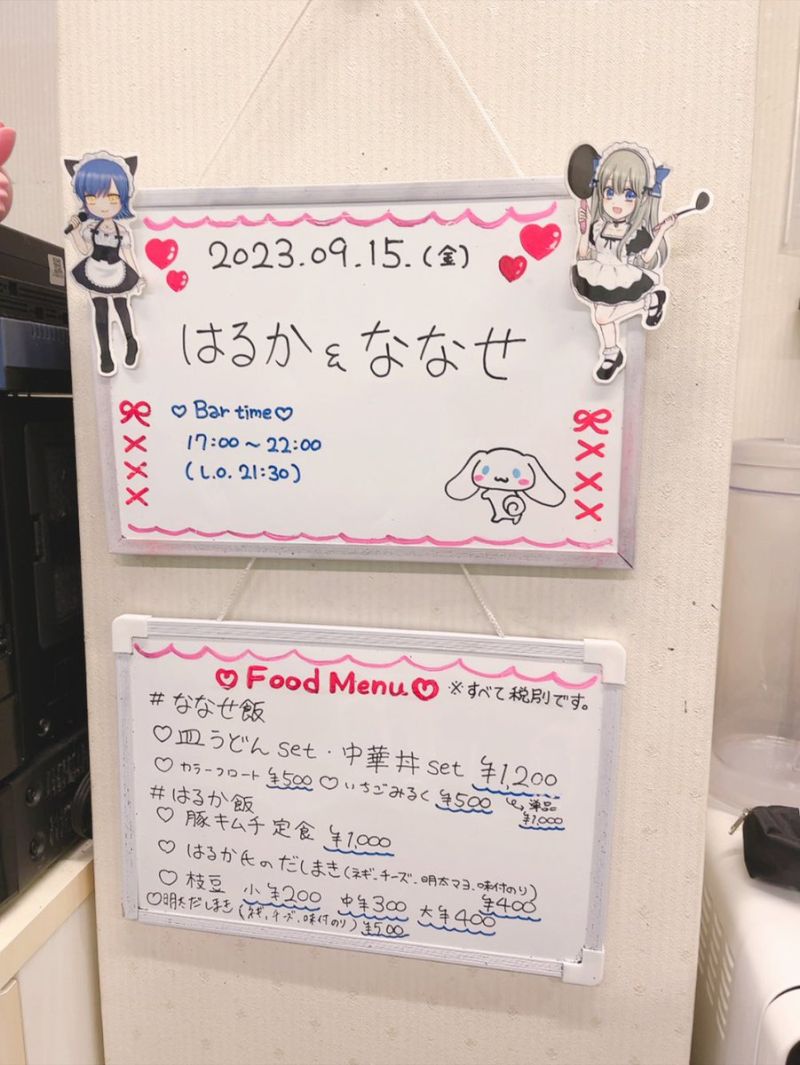 2023.09.15.(金)
はるか & ななせ
♡ Bar time ♡
17:00～22:00
(L.O. 21:30)
♡ Food Menu ♡ ※すべて税別です。
# ななせ飯
♡ 皿うどん set・中華丼 set ¥1,200
♡ カラーフロート ¥500 ♡ いちごみるく ¥500 ↪ 単品 ¥1,000
# はるか飯
♡ 豚キムチ定食 ¥1,000
♡ はるか氏のだしまき(ネギ、チーズ、明太マヨ、味付のり) ¥400
♡ 枝豆 小¥200 中¥300 大¥400
♡明太だしまき(ネギ、チーズ、味付のり) ¥500